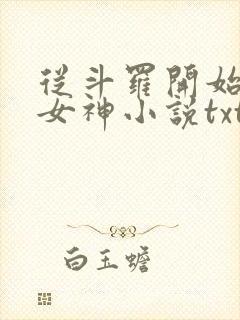 從斗羅開始
女神小説txt
白玉蟾